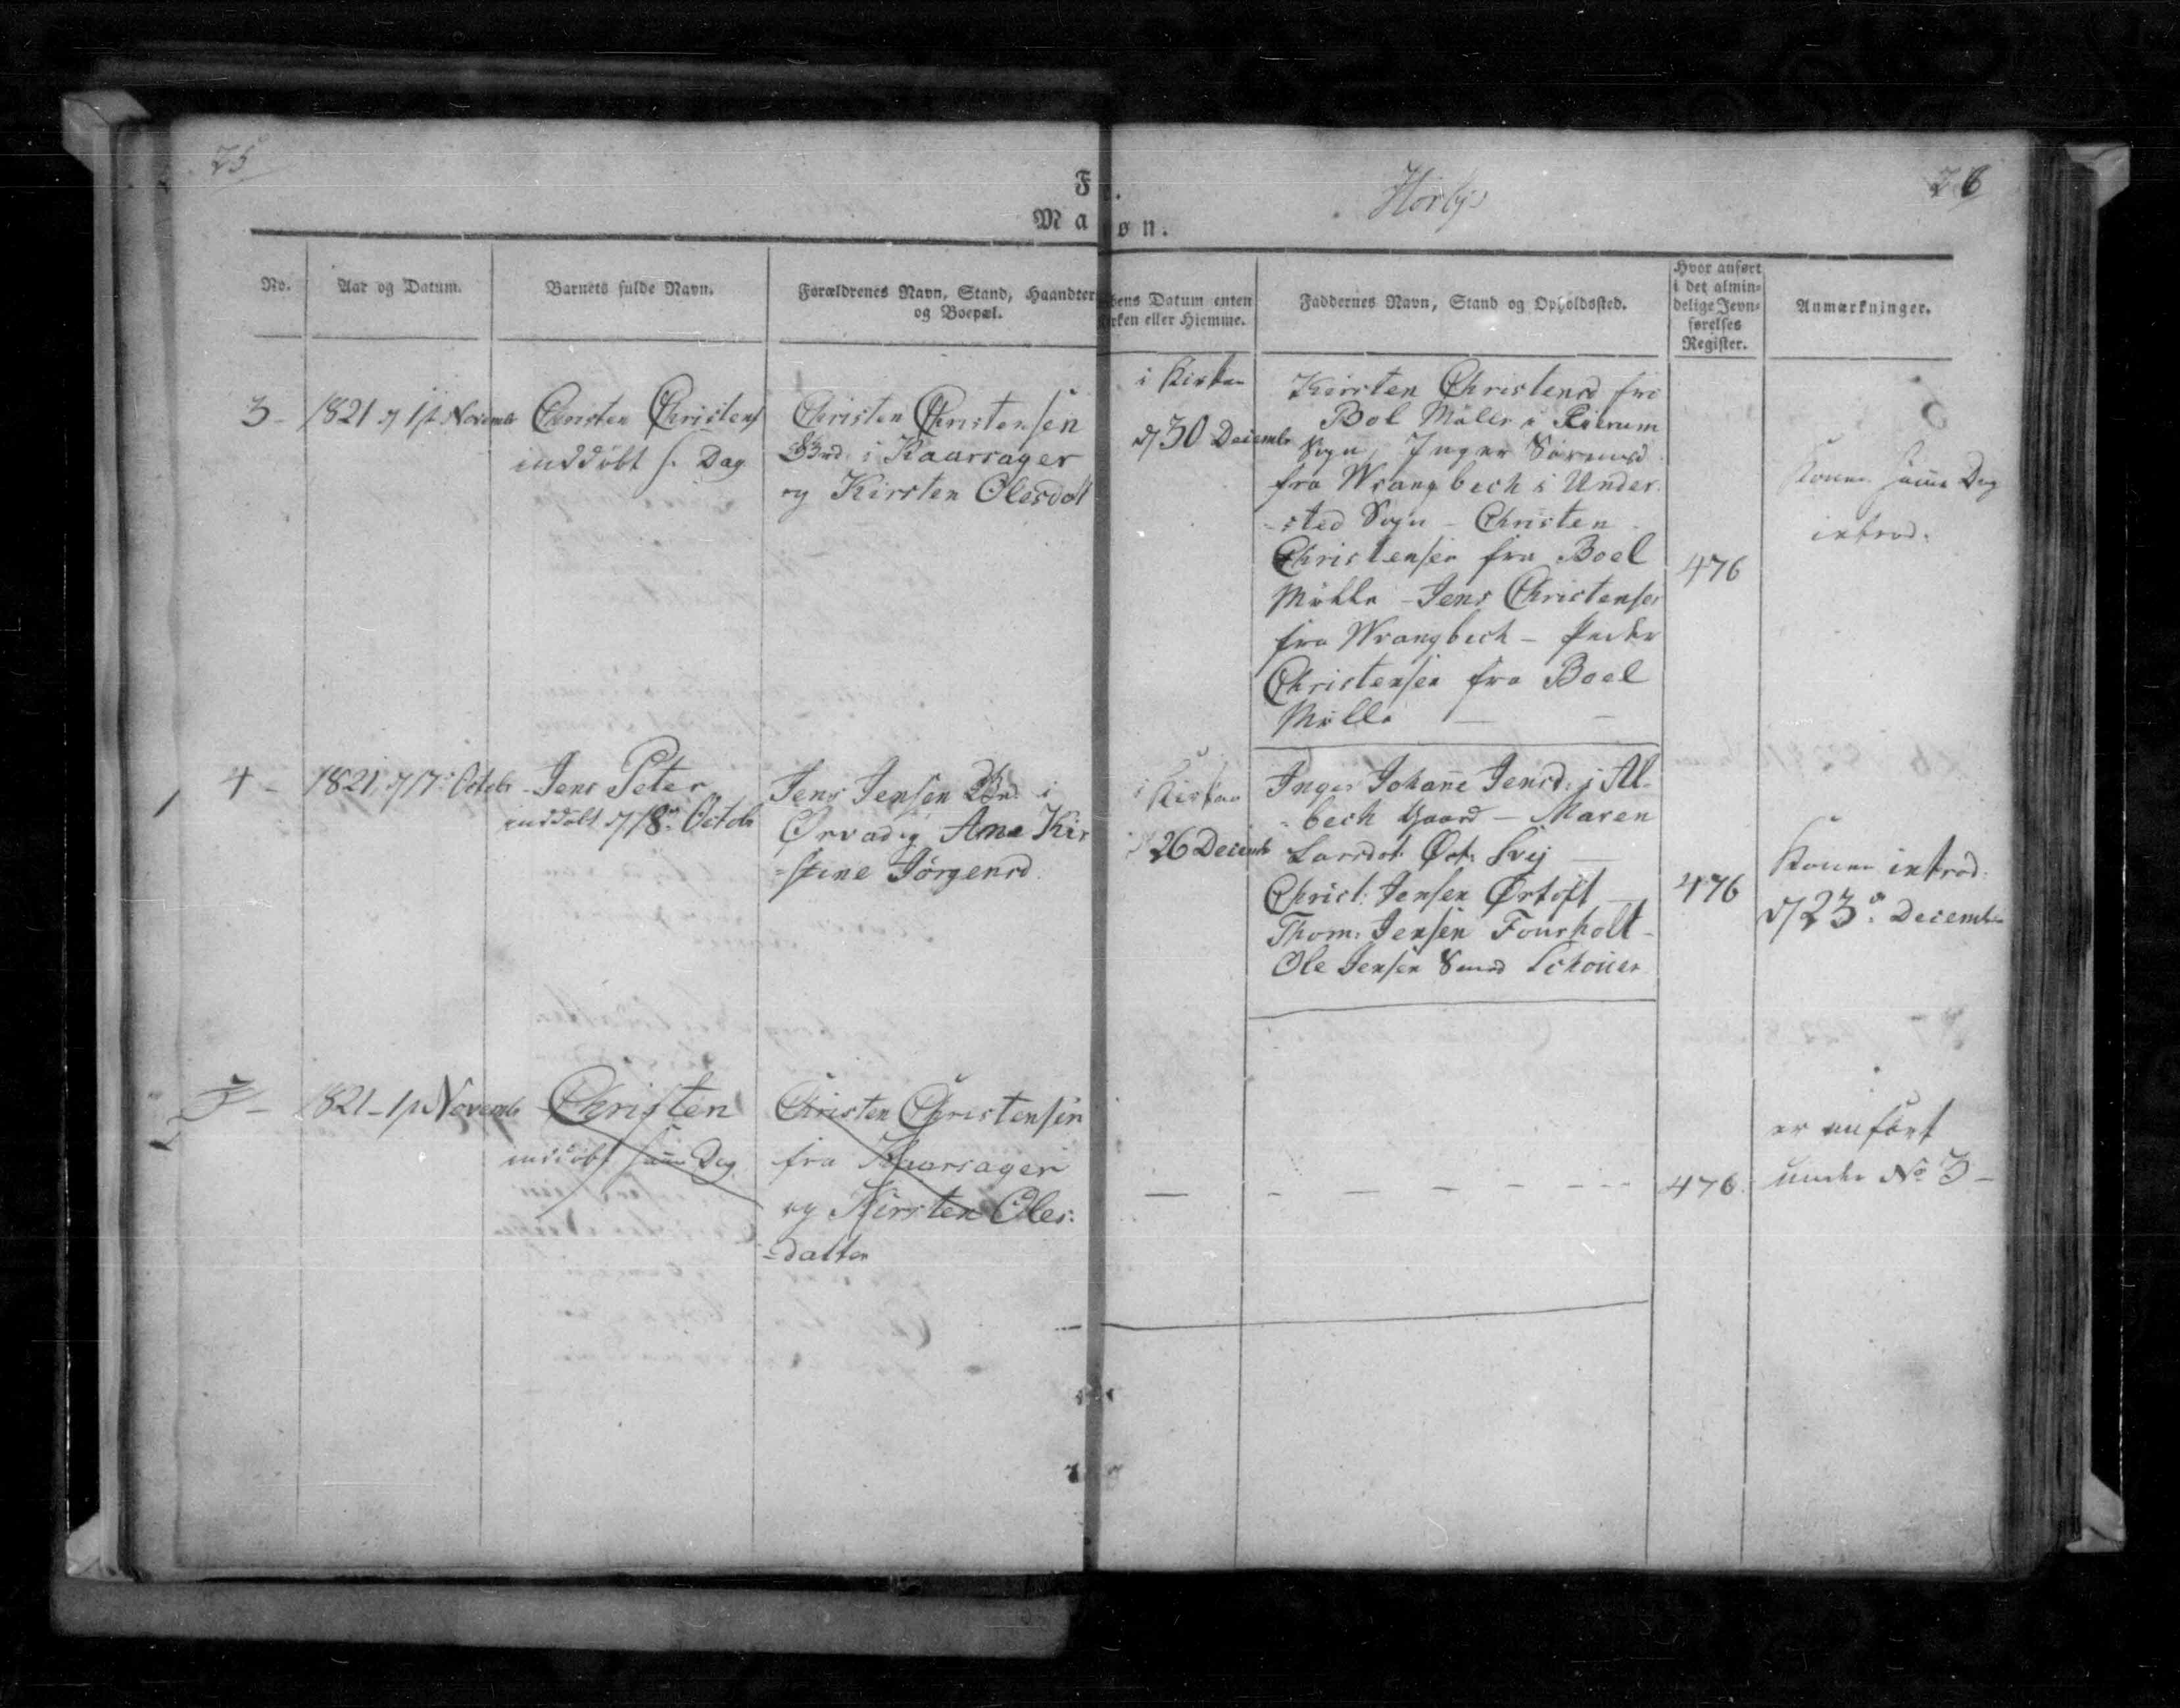 25
26
F
Hörby
Ma
øn.
No.
Aar og Datum.
Barnets fulde Navn.
Forældrenes Navn, Stand, Haandter
og Boepæl.
bens Datum enten
irken eller Hiemme.
Faddernes Navn, Stand og Opholdssted.
Hvor anført
i det almin=
delige Jevn=
førelses
Register.
Anmærkninger.
3 –
1821 d 1st Novemb
Christen Christens
inddöbt s. Dag
Christen Christensen
i Kaarsager
og Kirsten Olesdat
i Kirken
d 30 Decembr
Kirsten Christensd fra
Bol Mölle i
Sogn, Inger Sörensd
fra Wrangbech i Under
-sted Sogn – Christen
Christensen fra Boel
Mölle – Jens Christensen
fra Wrangbech – Peder
Christensen fra Boel
Mölle –
476
Konen samme Dag
introd.
4 –
1821 d 17. Octobr
Jens Peter
inddöbt d 18. Octobr
Jens Jensen i
Ørvad og Ane Kir
=stine Jörgensd.
i Kirken
d 26 Decemb
Inger Johañe Jensd: i Al-
bech Gaard – Maren
Larsdat
Christ: Jensen Ørtoft –
Thom: Jensen Fourholt –
Ole Jensen
476
Konen introd:
d 23. Decembr
5 –
1821 – 1st Novemb
Christen
inddöbt samme Dag
Christen Christensen
fra Kaarsager
og Kirsten Oles:
=datter
– – – – – – – –
476
er anfört
under No 3 –